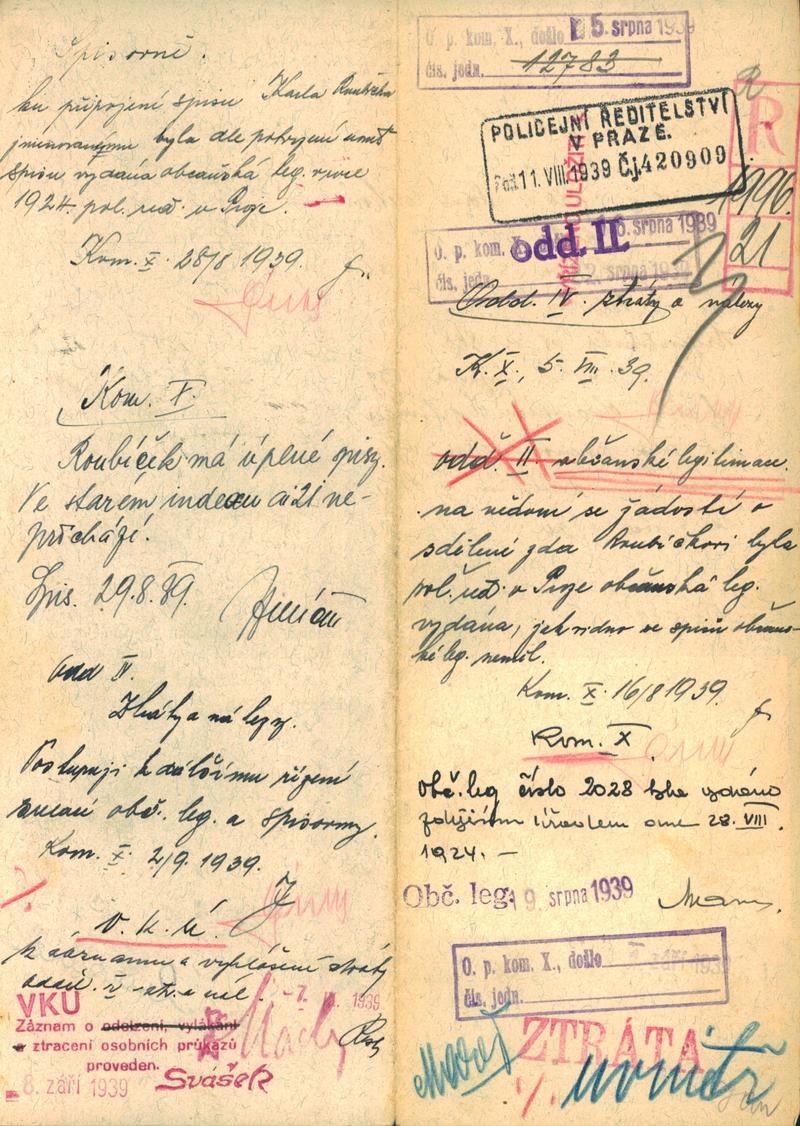 Spisovně.
ku připojení spisu Karla Roubíčka
jmenovanému byla dle potvrzení
spisu vydána občanská leg. v roce
1924 pol. řed. v Praze.
Kom. X. 28/8 1939.
Kom. X.
Roubíček má úplné spisy.
Ve starém indexu ai 21 ne-
přichází.
Spis. 29.8.39.
odd II.
Ztráty a nálezy.
Postupuji k dalšímu řízení
obč. leg. a spisovny.
Kom. X. 2/9. 1939.
V. K. Ú.
k záznamu a vyhlášení ztráty
odděl. IV - ztr. a nál.
- 7. IX. 1939
VKÚ
Záznam o odcizení, vylákání
a ztracení osobních průkazů
proveden.
- 8. září 1939 Svášek
O. p. kom. X., došlo 5. srpna 1939
čís. jedn. 12783
POLICEJNÍ ŘEDITELSTVÍ
V PRAZE.
11. VIII. 1939 Čj. 420909
R
1996
21
O. p. kom. X. srpna 1939
čís. jedn. srpna 193
odd. II.
Odd. IV. ztráty a nálezy
K. X., 5. VIII. 39.
odd. II. občanské legitimace.
na vědomí se žádostí o
sdělení zda Roubíčkovi byla
pol. řed. v Praze občanská leg.
vydána, jak vidno ze spisů občans-
ké leg. neměl.
Kom. X. 16/8 1939.
Kom. X
Obč. leg číslo 2028 byla vydána
zdejším úřadem dne 28. VIII.
1924. -
Obč. leg. 19. srpna 1939
O. p. kom. X., došlo září 193
čís. jedn.
ZTRÁTA